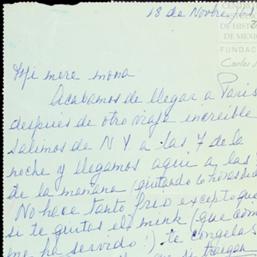 18 de Novbre
DE HISTO
DE MEXIC
FUNDAC
Carlos
Mi mere mona
Acabamos de llegar a Paris
despues de otro viaje increible
Salimos de N Y a las 7 de la
noche y llegamos aqui a las
de la mañana (quitando 6 horas di
No hace tanto frio excepto que
si te quitas el mink (que com
me ha servido!) te congelas
que se traigan